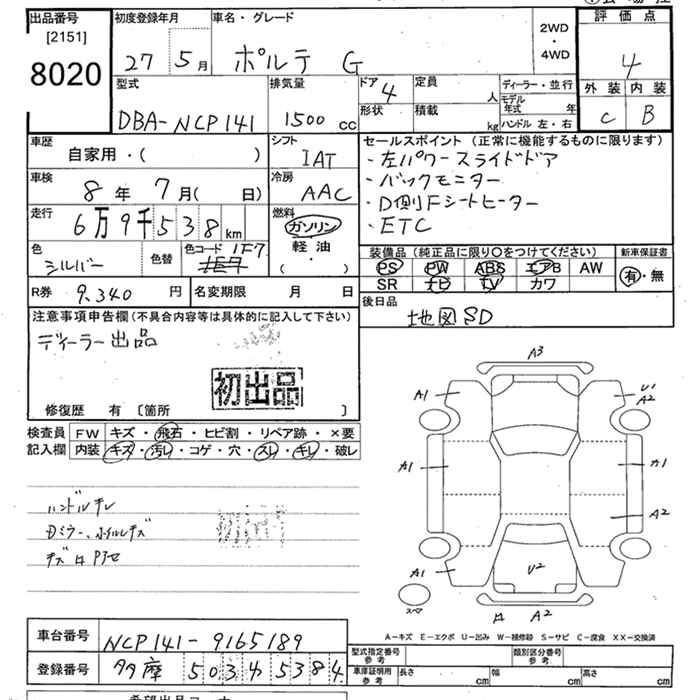 出品番号 [2151] 8020
初度登録年月 27 5月
車名・グレード ポルテ G
2WD・4WD
評価点 4
外装 C 内装 B
型式 DBA-NCP141
排気量 1500 cc
ドア 4
形状
定員 人
積載 kg
ディーラー・並行
モデル年式 年
ハンドル 左・右
車歴 自家用・( )
シフト IAT
セールスポイント(正常に機能するものに限ります)
・左パワースライドドア
・バックモニター
・D側Fシートヒーター
・ETC
車検 8年 7月( 日)
冷房 AAC
走行 6万9千538km
燃料 ガソリン 軽油 ( ・ )
色 シルバー
色替
色コード 1F7
装備品(純正品に限り○をつけてください)
新車保証書 有・無
PS PW ABS エアB AW
SR ナビ TV カワ
R券 9,340円
名変期限 月 日
後日品 地図SD
注意事項申告欄(不具合内容等は具体的に記入して下さい)
ディーラー出品
初出品
修復歴 有 [箇所 ]
検査員記入欄
FW キズ・飛石・ヒビ割・リペア跡・×要
内装 キズ・汚レ・コゲ・穴・スレ・キレ・破レ
ハンドルキレ
Dミラー、ホイルキズ
A3
A1
U1
A2
A1
A1
A2
A1
U2
スペア
A2
A-キズ E-エクボ U-凹み W-補修跡 S-サビ C-腐食 XX-交換済
車台番号 NCP141-9165189
登録番号 多摩 503 す 5384
型式指定番号 参考
類別区分番号 参考
車庫証明用 参考 長さ cm 幅 cm 高さ cm